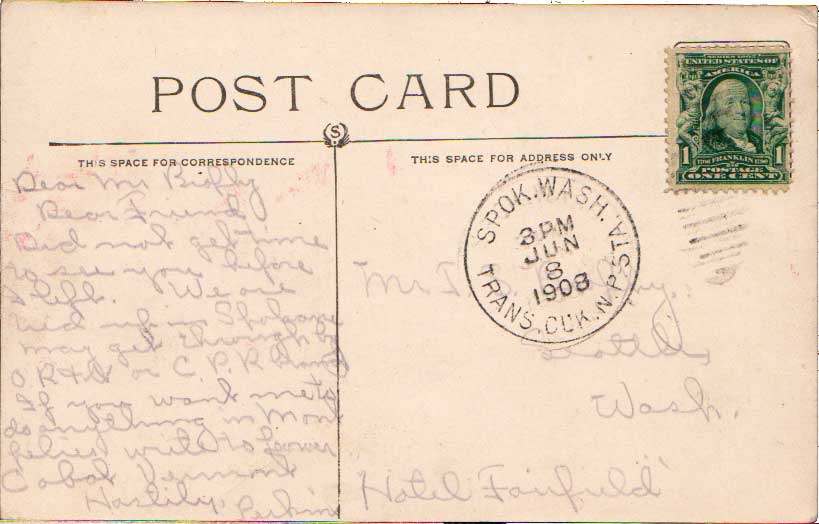 POST CARD
THIS SPACE FOR CORRESPONDENCE
THIS SPACE FOR ADDRESS ONLY
SERIES 1902
UNITED STATES OF
AMERICA
1 1706 FRANKLIN 1790 1
POSTAGE
ONE CENT
SPOK. WASH.
3 PM
JUN
8
1908
TRANS. CLK. N.P. STA.
Dear Mr
Dear Friend
Did not get time
to see you before
I left. We are
tied up in Spokane
may get through by
O.R.& N or C.P.R.
If you want me to
do anything in Mont
write to
Cabot Vermont
Hastily, Perkins
Mr
Seattle,
Wash.
Hotel Fairfield